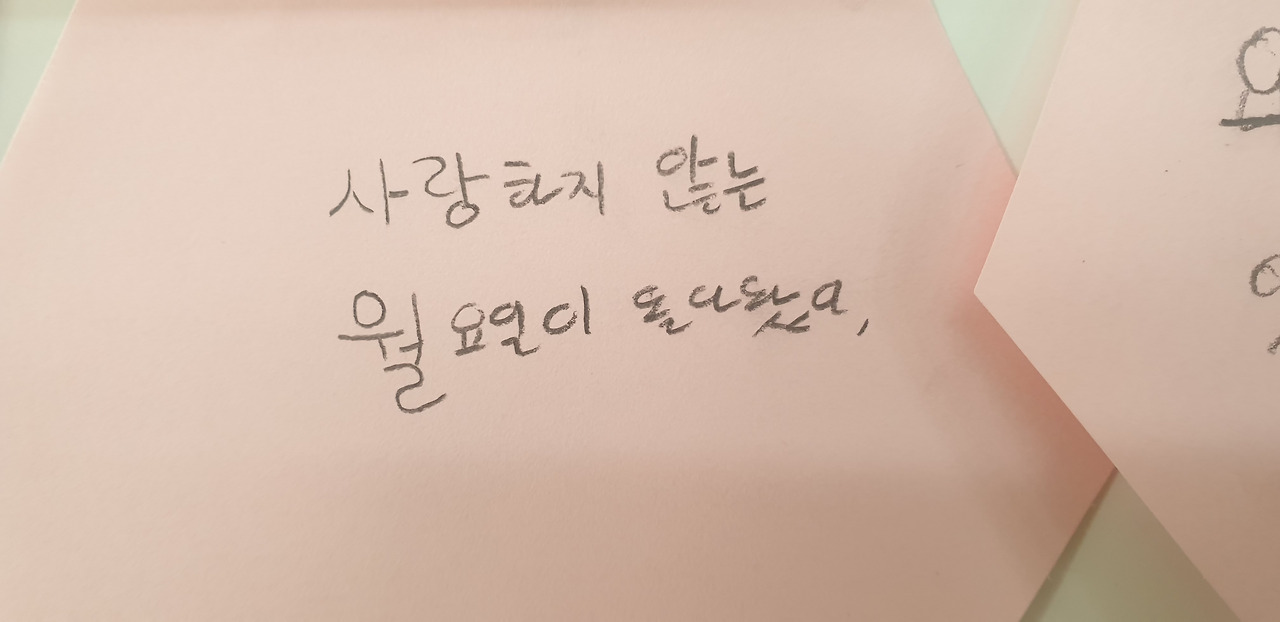 사랑하지 않는
월요일이 돌아왔다,